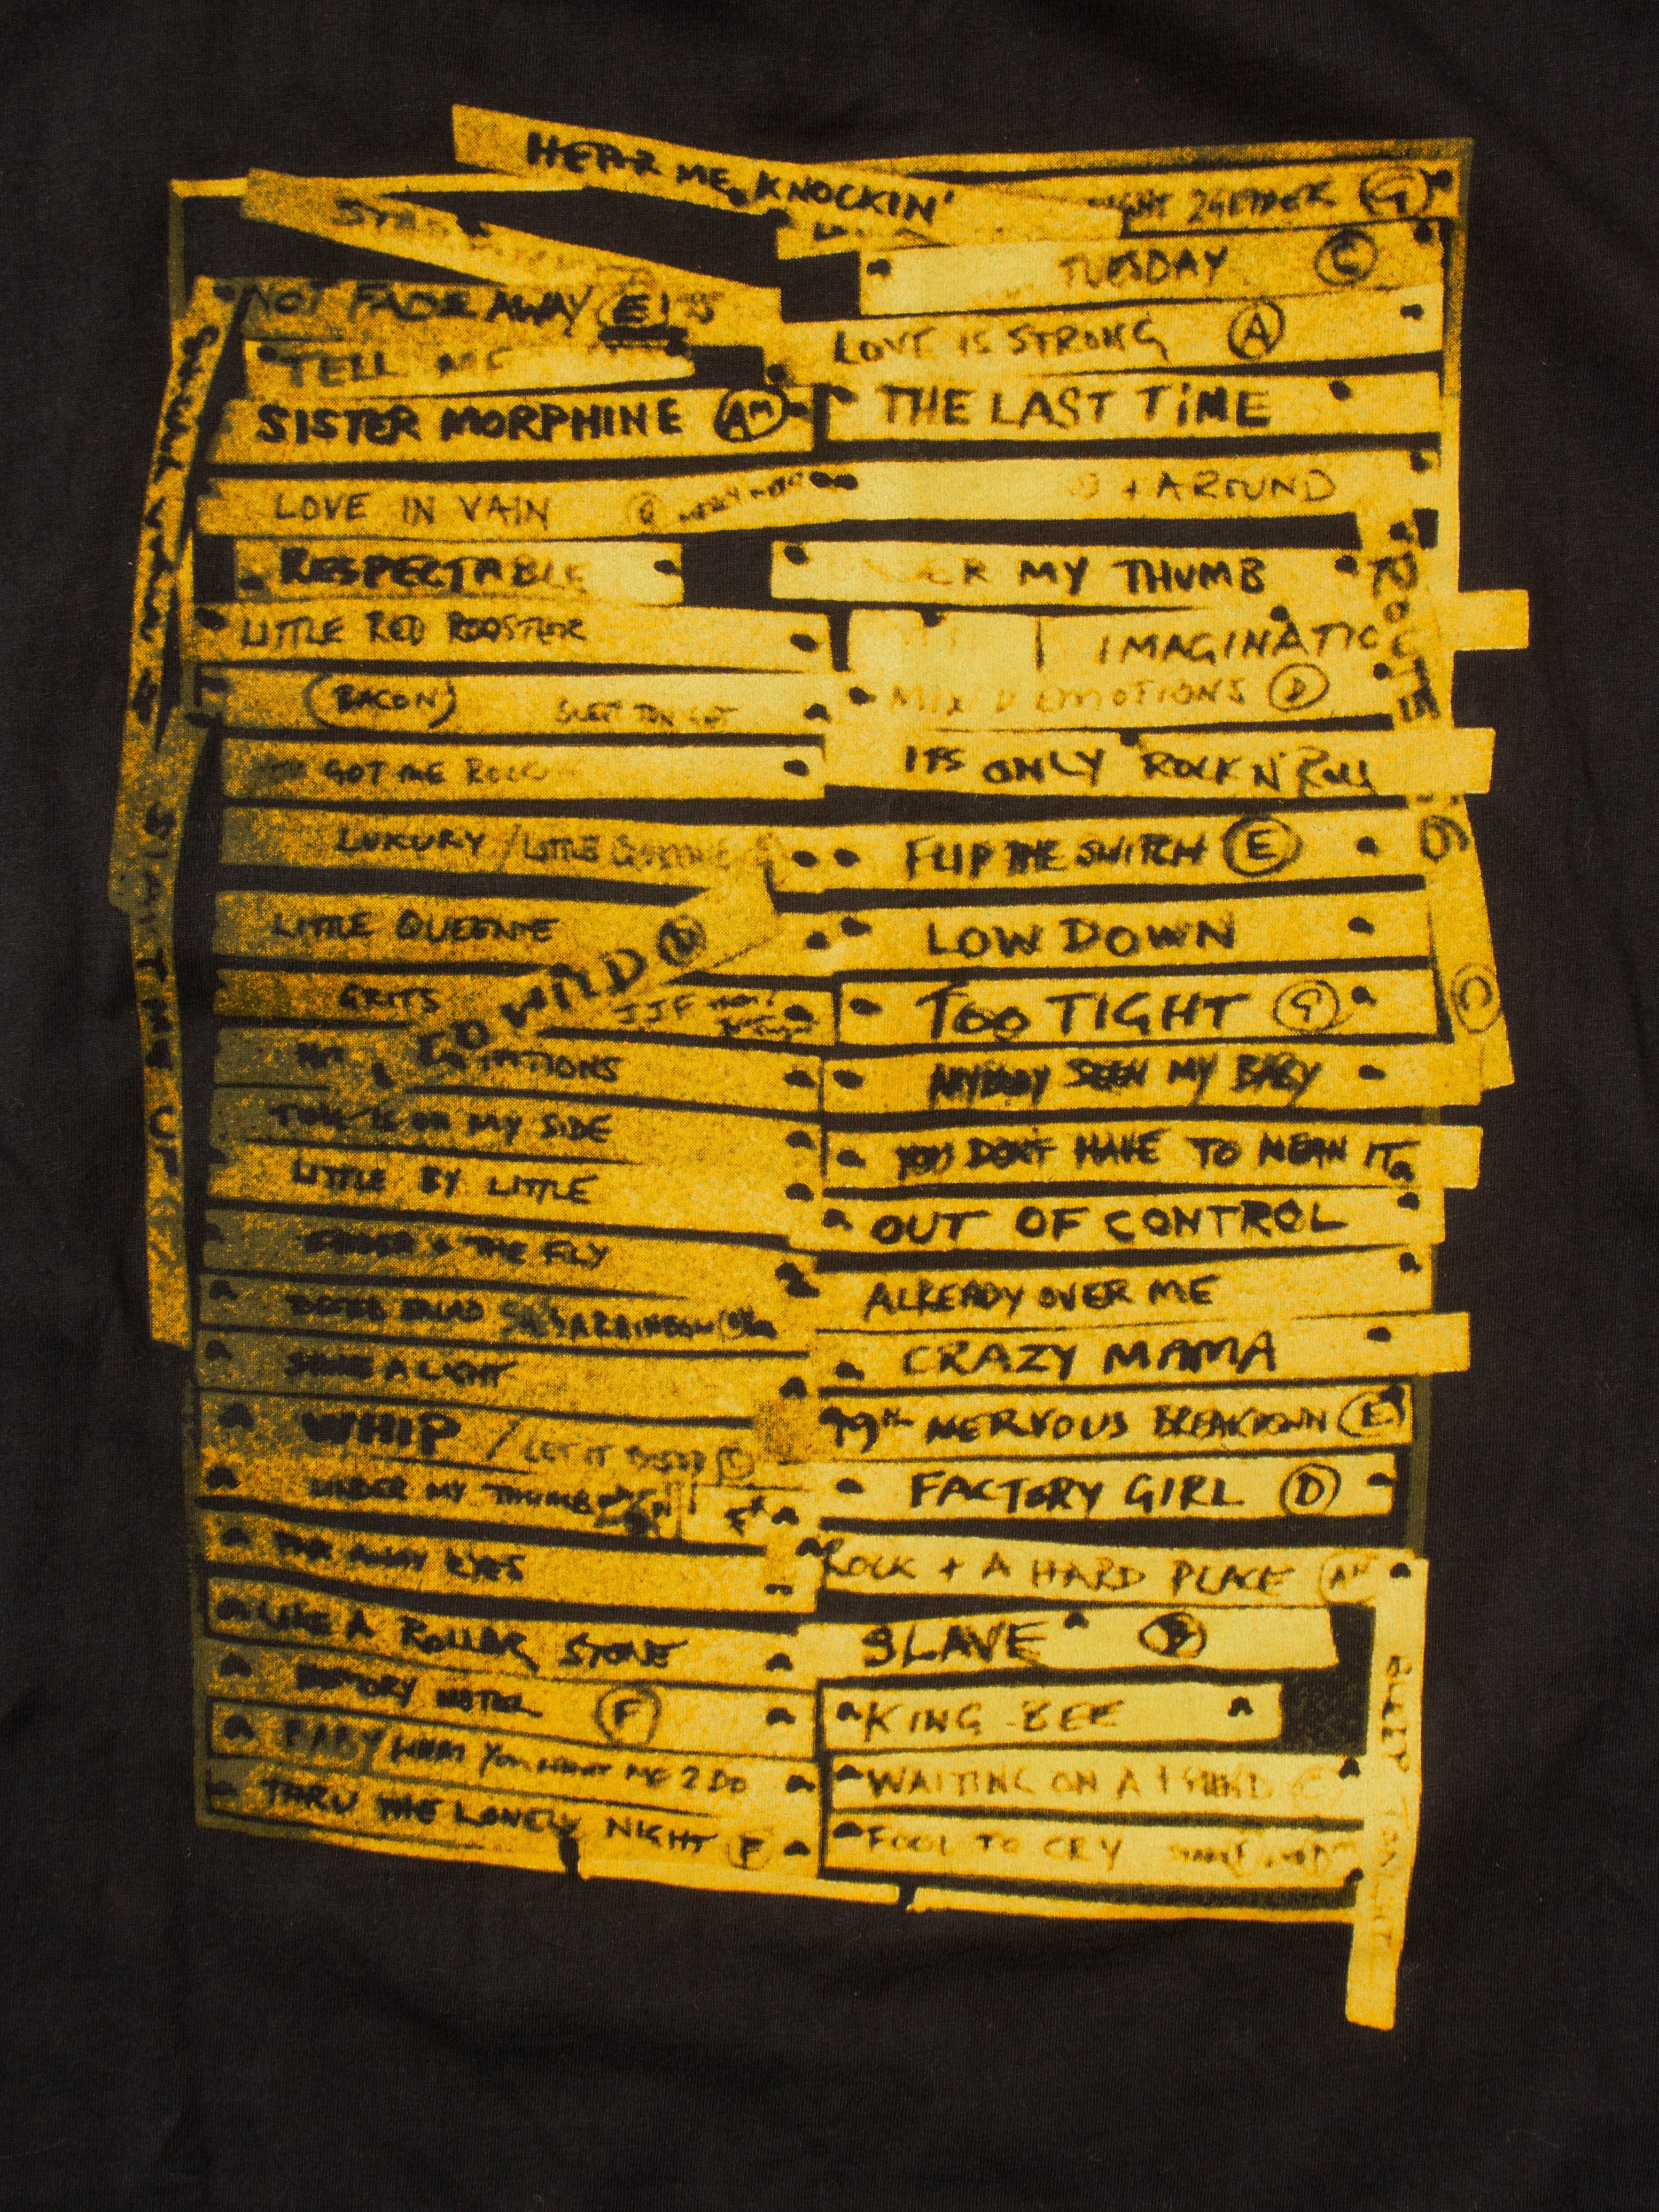 HEAR ME KNOCKIN'
NOT FADE AWAY E
TELL ME
SISTER MORPHINE Am
LOVE IN VAIN
RESPECTABLE
LITTLE RED ROOSTER
(BACON) SLEEP TONIGHT
GOT ME ROCK
LUXURY / LITTLE
LITTLE QUEENIE
GO WILD
GRITS JJF
TATIONS
TIME IS ON MY SIDE
LITTLE BY LITTLE
SPIDER + THE FLY
SHE'S A RAINBOW
SHINE A LIGHT
WHIP / LET IT BLEED
UNDER MY THUMB
FAR AWAY EYES
LIKE A ROLLING STONE
MEMORY MOTEL F
BABY WHAT YOU WANT ME 2 DO
THRU THE LONELY NIGHT F
START ME UP
G
TUESDAY C
LOVE IS STRONG A
THE LAST TIME
+ AROUND
ER MY THUMB
IMAGINATIO
MIXD EMOTIONS D
ITS ONLY ROCK N' ROLL
FLIP THE SWITCH E
LOW DOWN
TOO TIGHT G
ANYBODY SEEN MY BABY
YOU DON'T HAVE TO MEAN IT
OUT OF CONTROL
ALREADY OVER ME
CRAZY MAMA
19th NERVOUS BREAKDOWN E
FACTORY GIRL D
ROCK + A HARD PLACE Am
SLAVE
KING BEE
WAITING ON A FRIEND C
FOOL TO CRY
C
SLEEP TONIGHT